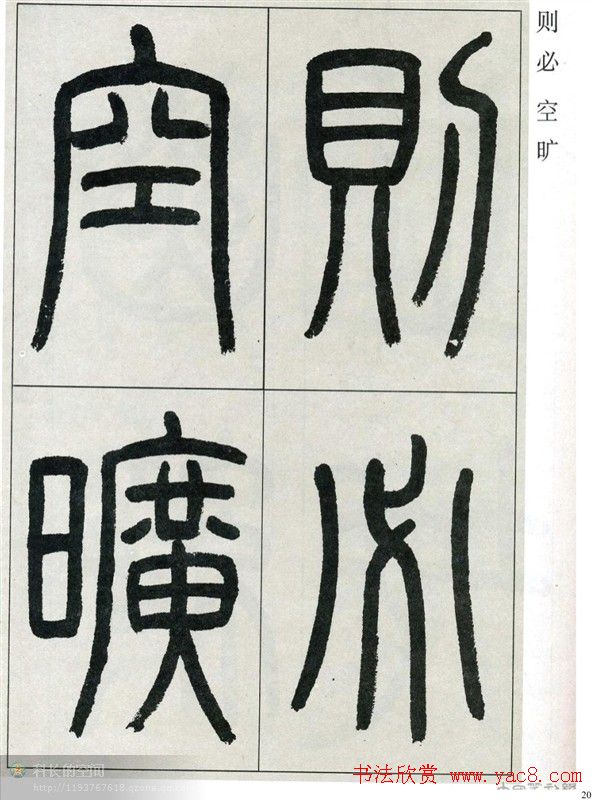 則必
空曠
则必 空旷
科长的空间
http://1193767618.qzone.qq.com
书法欣赏 www.yac8.com
20